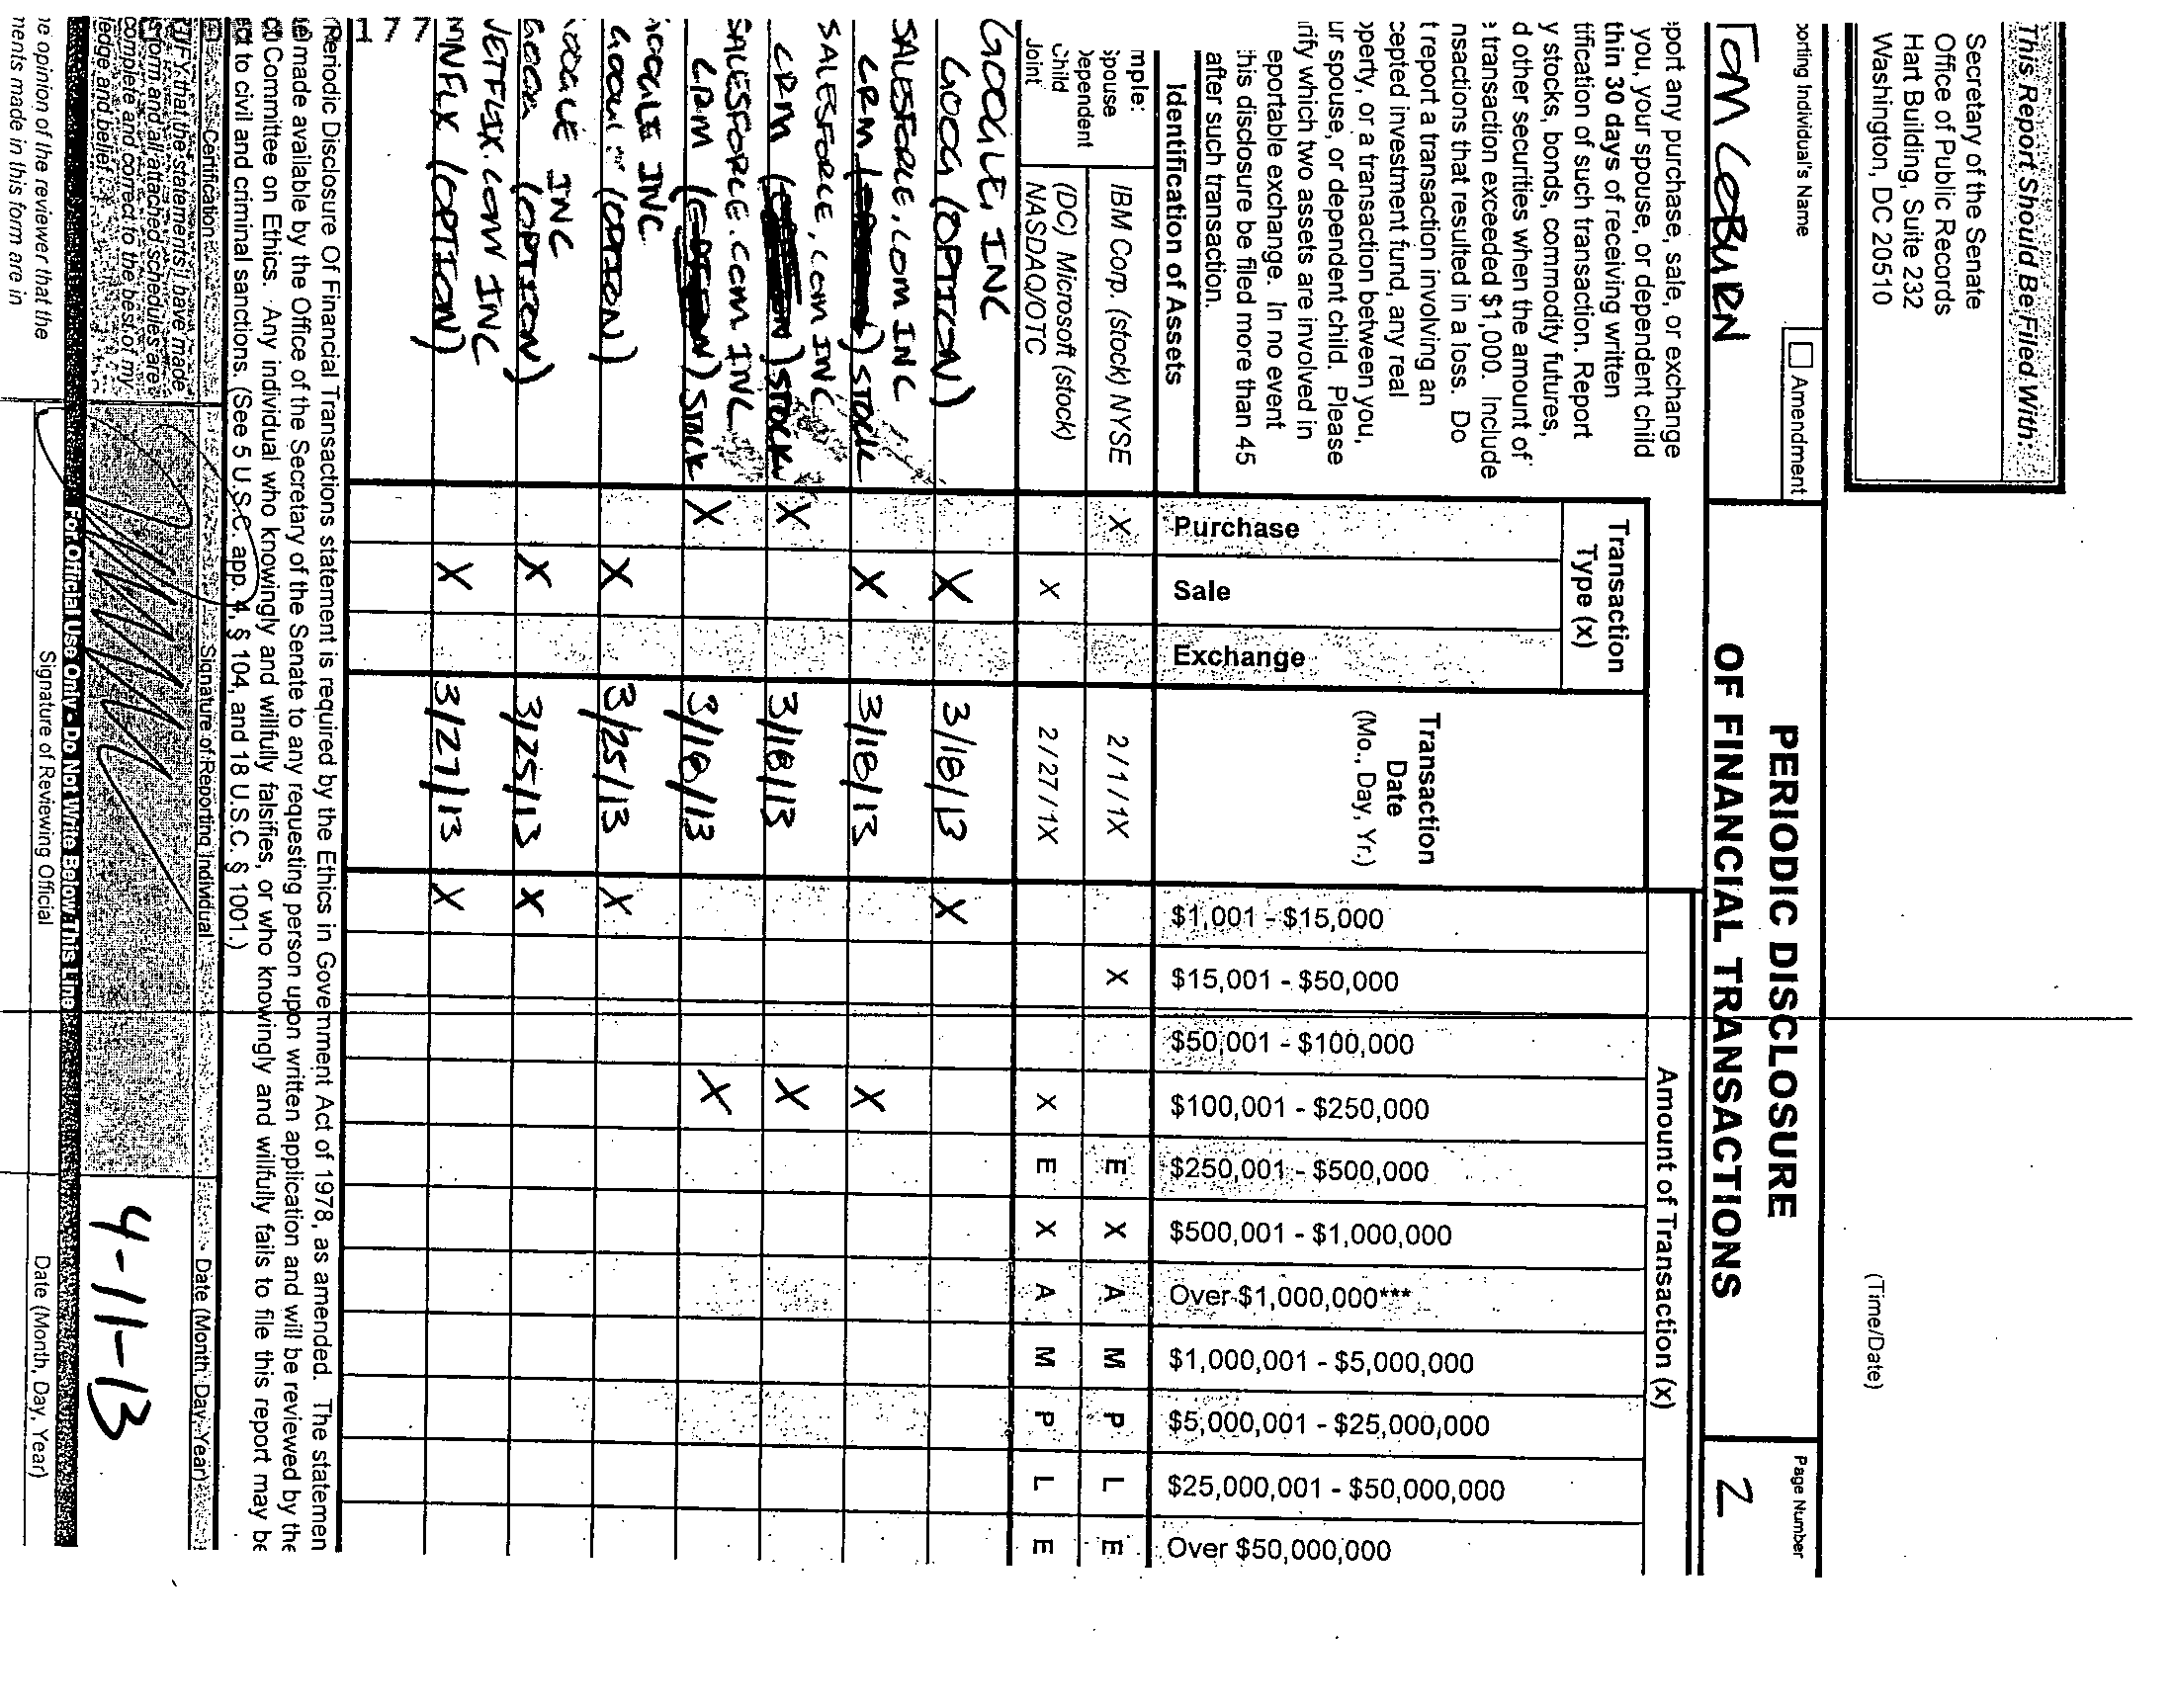 This Report Should Be Filed With:
Secretary of the Senate
Office of Public Records
Hart Building, Suite 232
Washington, DC 20510
(Time/Date)
orting Individual's Name
Amendment
TOM COBURN
PERIODIC DISCLOSURE
OF FINANCIAL TRANSACTIONS
Page Number
2
port any purchase, sale, or exchange
you, your spouse, or dependent child
y stocks, bonds, commodity futures,
d other securities when the amount of
e transaction exceeded $1,000. Include
nsactions that resulted in a loss. Do
t report a transaction involving an
cepted investment fund, any real
operty, or a transaction between you,
ur spouse, or dependent child. Please
rify which two assets are involved in
eportable exchange. In no event
this disclosure be filed more than 45
after such transaction.
thin 30 days of receiving written
tification of such transaction. Report
Identification of Assets
Transaction
Type (x)
Purchase
Sale
Exchange
Transaction
Date
(Mo., Day, Yr.)
Amount of Transaction (x)
$1,001 - $15,000
$15,001 - $50,000
$50,001 - $100,000
$100,001 - $250,000
$250,001 - $500,000
$500,001 - $1,000,000
Over $1,000,000***
$1,000,001 - $5,000,000
$5,000,001 - $25,000,000
$25,000,001 - $50,000,000
Over $50,000,000
mple:
Spouse
Dependent
Child
Joint
IBM Corp. (stock) NYSE X 2/1/1X X E X A M P L E
(DC) Microsoft (stock)
NASDAQ/OTC X 2/27/1X X E X A M P L E
GOOGLE, INC
GOOG (OPTION) X 3/18/13 X
SALESFORCE.COM INC
CRM STOCK X 3/18/13 X
SALESFORCE.COM INC
CRM STOCK X 3/18/13 X
SALESFORCE.COM INC
CRM STOCK X 3/18/13 X
OOGLE INC
(OPTION) X 3/25/13 X
OOGLE INC
(OPTION) X 3/25/13 X
NETFLIX.COM INC
NFLX (OPTION) X 3/27/13 X
177
Periodic Disclosure Of Financial Transactions statement is required by the Ethics in Government Act of 1978, as amended. The statemen
e made available by the Office of the Secretary of the Senate to any requesting person upon written application and will be reviewed by the
ct Committee on Ethics. Any individual who knowingly and willfully falsifies, or who knowingly and willfully fails to file this report may be
ct to civil and criminal sanctions. (See 5 U.S.C. app. 4, § 104, and 18 U.S.C. § 1001.)
Certification
Signature of Reporting Individual
Date (Month, Day, Year)
TIFY that the statements I have made
form and all attached schedules are
complete and correct to the best of my
ledge and belief.
4-11-13
For Official Use Only - Do Not Write Below This Line
he opinion of the reviewer that the
ments made in this form are in
Signature of Reviewing Official
Date (Month, Day, Year)